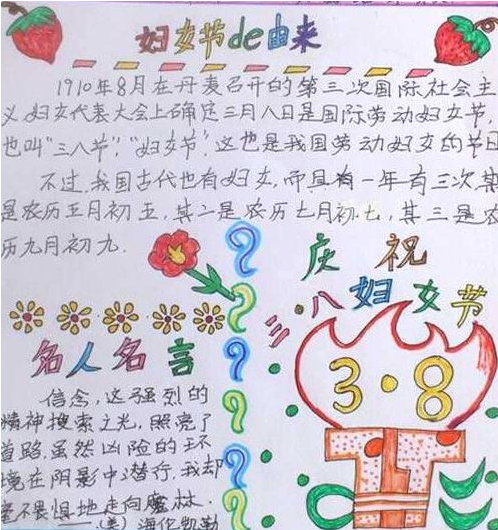 妇女节de由来
1910年8月在丹麦召开的第三次国际社会主
义妇女代表大会上确定三月八日是国际劳动妇女节,
也叫"三八节","妇女节".这也是我国劳动妇女的节日
不过,我国古代也有妇女,而且有一年有三次其
是农历五月初五,其二是农历七月初七,其三是农
历九月初九.
庆祝
三八妇女节
3·8
名人名言
信念,这强烈的
精神搜索之光,照亮了
道路,虽然凶险的环
境在阴影中潜行,我却
不畏惧地走向魔林.
——(美)海伦凯勒